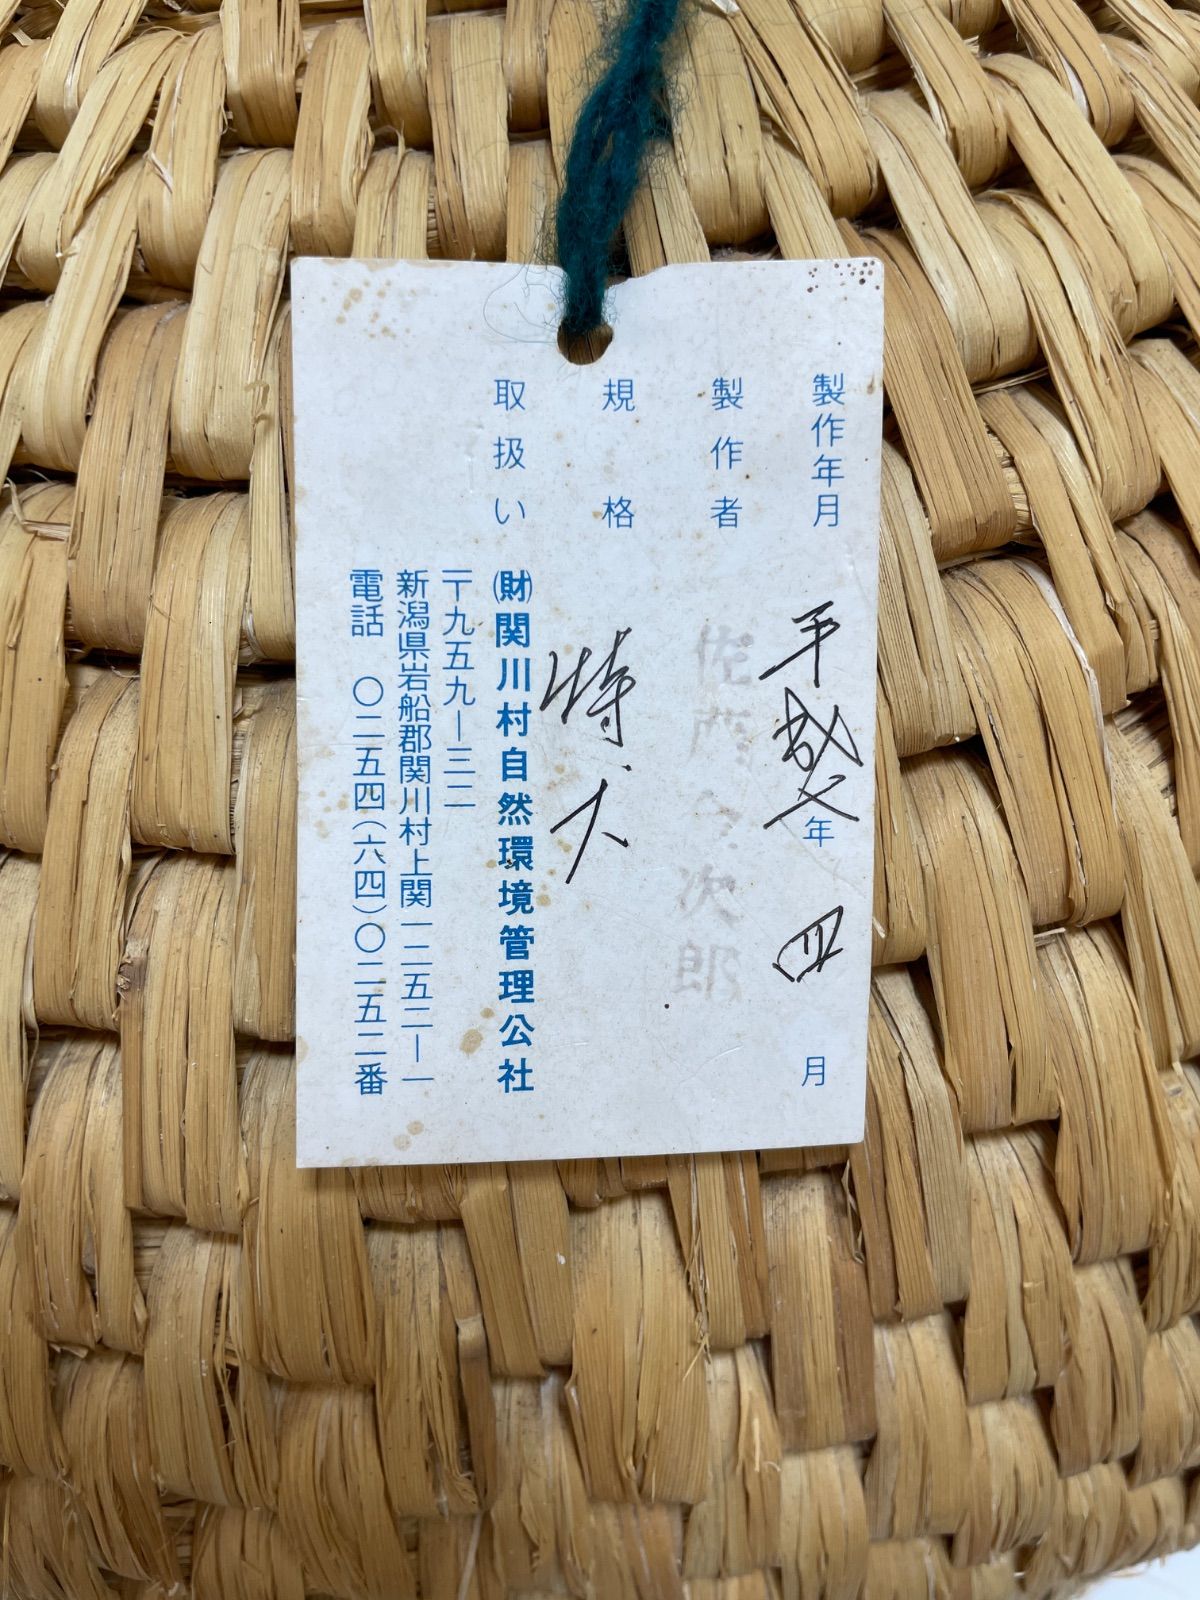 製作年月 平成 年 四 月
製作者 佐藤 次郎
規格 特大
取扱い (財)関川村自然環境管理公社
〒九五九―三二
新潟県岩船郡関川村上関一二五二―一
電話 〇二五四(六四)〇二五二番